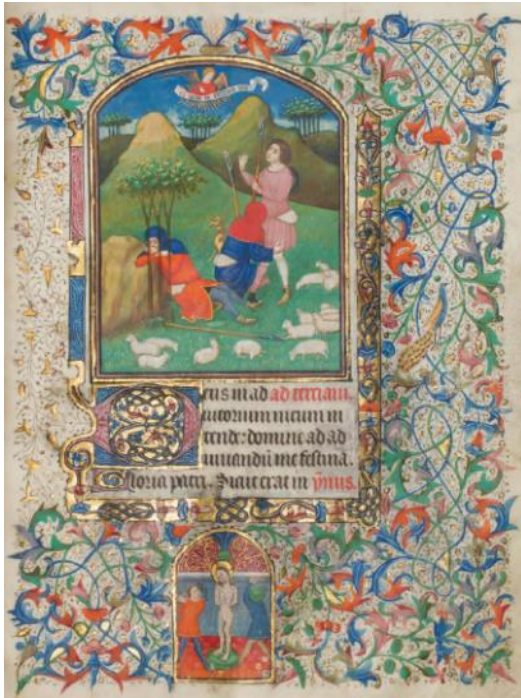 Deus in ad ad terciam.
iutorium meum in
tende: domine ad ad
iuuandū me festina.
Gloria patri. Sicut erat in ymus.